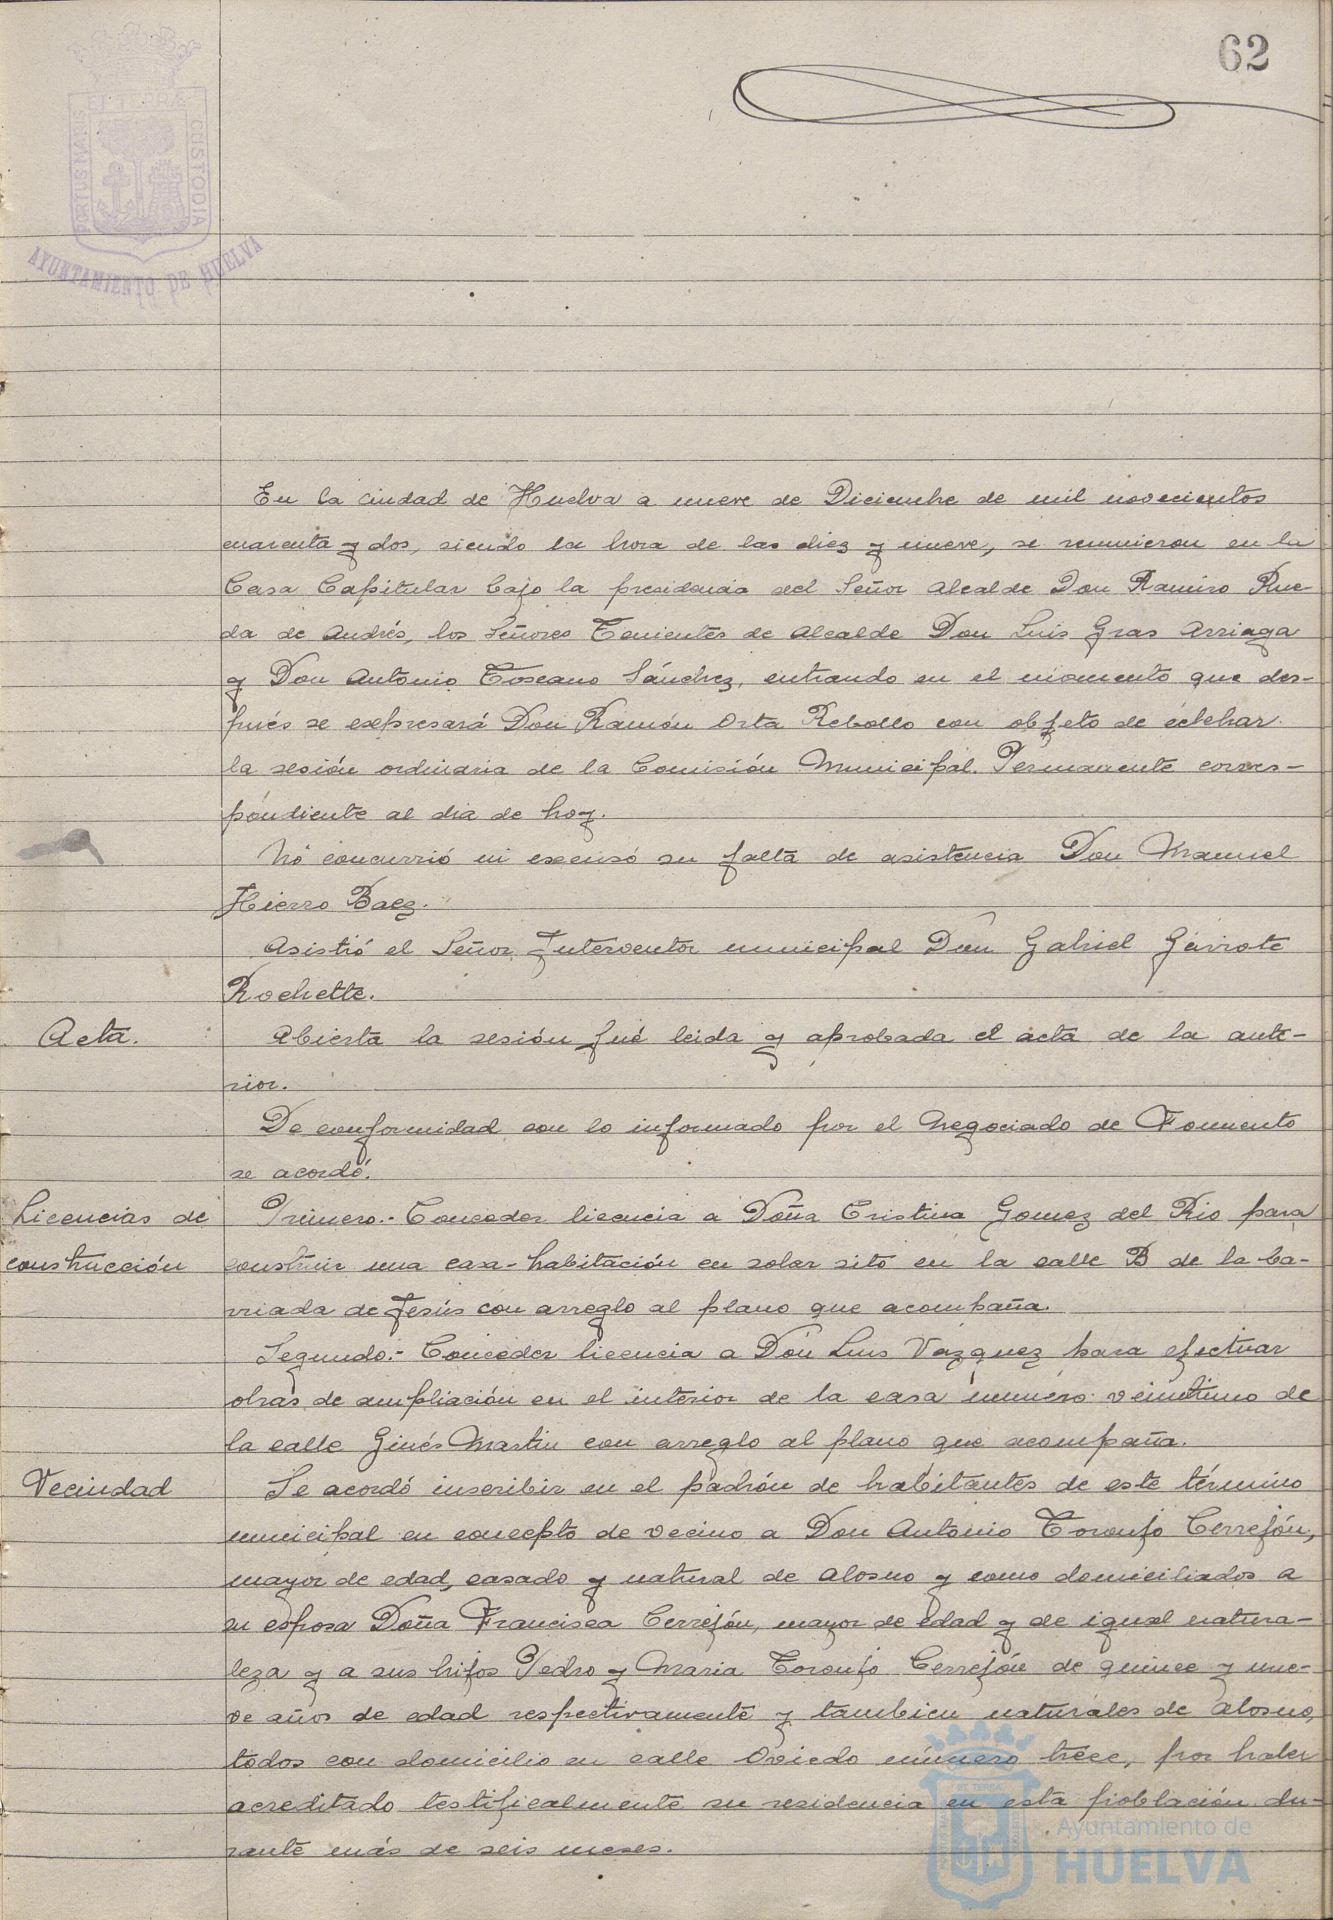 62
ET TERRÆ
PORTUS MARIS
CUSTODIA
AYUNTAMIENTO DE HUELVA
En la ciudad de Huelva a nueve de Diciembre de mil novecientos
cuarenta y dos, siendo la hora de las diez y nueve, se reunieron en la
Casa Capitular bajo la presidencia del Señor Alcalde Don Ramiro Rue-
da de Andrés, los Señores Tenientes de Alcalde Don Luis Gras Arriaga
y Don Antonio Toscano Sánchez, entrando en el momento que des-
pués se expresará Don Ramón Orta Rebollo con objeto de celebrar
la sesión ordinaria de la Comisión Municipal Permanente corres-
pondiente al dia de hoy.
No concurrió ni excusó su falta de asistencia Don Manuel
Hierro Baez.
Asistió el Señor Interventor municipal Don Gabriel Gavirote
Rochette.
Acta.
Abierta la sesión fué leida y aprobada el acta de la ante-
rior.
De conformidad con lo informado por el Negociado de Fomento
se acordó:
Licencias de
construcción
Primero.- Conceder licencia a Doña Cristina Gomez del Rio para
construir una casa-habitación en solar sito en la calle B de la ba-
rriada de Jesús con arreglo al plano que acompaña.
Segundo.- Conceder licencia a Don Luis Vazquez para efectuar
obras de ampliación en el interior de la casa número veintiuno de
la calle Ginés Martin con arreglo al plano que acompaña.
Vecindad
Se acordó inscribir en el padrón de habitantes de este término
municipal en concepto de vecino a Don Antonio Toronjo Cerrejón,
mayor de edad, casado y natural de Alosno y como domiciliados a
su esposa Doña Francisca Cerrejón, mayor de edad y de igual natura-
leza y a sus hijos Pedro y Maria Toronjo Cerrejón de quince y nue-
ve años de edad respectivamente y tambien naturales de Alosno,
todos con domicilio en calle Oviedo número trece, por haber
acreditado testificalmente su residencia en esta población du-
rante más de seis meses.
Ayuntamiento de
HUELVA